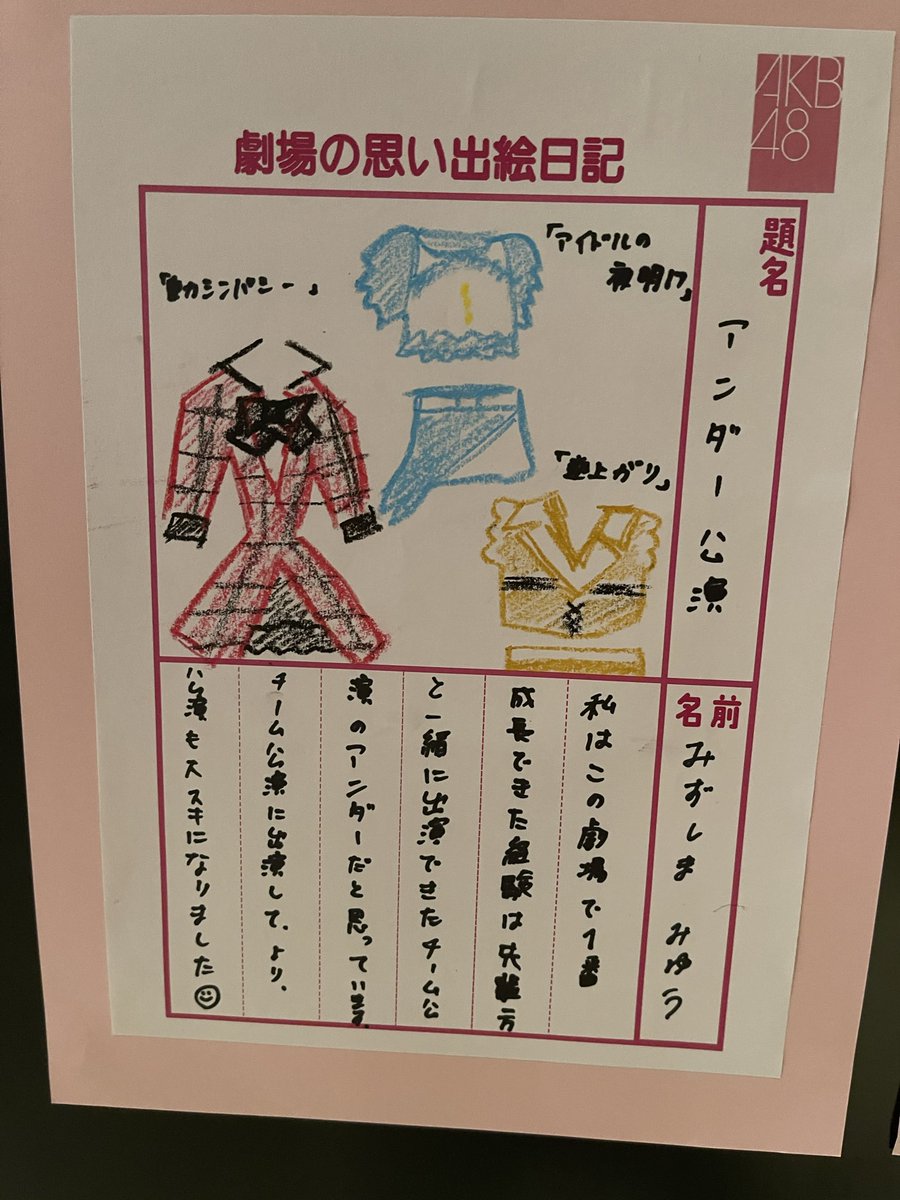 AKB
48
劇場の思い出絵日記
題名
アンダー公演
「アイドルの
夜明け」
シンパシー」
上がり」
名前
みずしま みゆう
私はこの劇場で1番
成長できた経験は先輩方
と一緒に出演できたチーム公
演のアンダーだと思っています。
チーム公演に出演して、より、
公演も大スキになりました☺